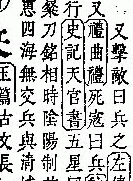 又擊敵曰兵之左傳
又禮曲禮死寇曰兵
行史記天官書五星
粲刀銘相時陰陽制
恩四海無交兵與淸
玉篇古文長